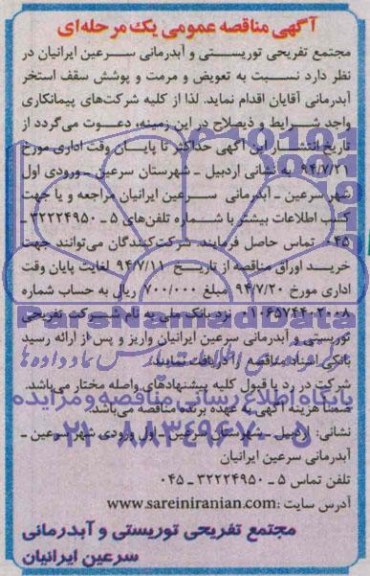 آگهی مناقصه عمومی یک مرحله‌ای
مجتمع تفریحی توریستی و آبدرمانی سرعین ایرانیان در
نظر دارد نسبت به تعویض و مرمت و پوشش سقف استخر
آبدرمانی آقایان اقدام نماید. لذا از کلیه شرکت‌های پیمانکاری
واجد شرایط و ذیصلاح در این زمینه، دعوت می‌گردد از
تاریخ انتشار این آگهی حداکثر تا پایان وقت اداری مورخ
۹۴/۷/۲۱ به نشانی اردبیل ـ شهرستان سرعین ـ ورودی اول
شهر سرعین ـ آبدرمانی سرعین ایرانیان مراجعه و یا جهت
کسب اطلاعات بیشتر با شماره تلفن‌های ۵ ـ ۳۲۲۲۴۹۵۰ ـ
۰۴۵ تماس حاصل فرمایند. شرکت‌کنندگان می‌توانند جهت
خرید اوراق مناقصه از تاریخ ۹۴/۷/۱۱ لغایت پایان وقت
اداری مورخ ۹۴/۷/۲۰ مبلغ ۷۰۰/۰۰۰ ریال به حساب شماره
۰۱۰۶۵۷۴۴۰۲۰۰۸ نزد بانک ملی به نام شرکت تفریحی
توریستی و آبدرمانی سرعین ایرانیان واریز و پس از ارائه رسید
بانکی اسناد مناقصه را دریافت نمایند.
شرکت در رد یا قبول کلیه پیشنهادهای واصله مختار می‌باشد.
ضمناً هزینه آگهی به عهده برنده مناقصه می‌باشد.
نشانی: اردبیل ـ شهرستان سرعین ـ اول ورودی شهر سرعین ـ
آبدرمانی سرعین ایرانیان
تلفن تماس ۵ ـ ۳۲۲۲۴۹۵۰ ـ ۰۴۵
آدرس سایت: www.sareiniranian.com
مجتمع تفریحی توریستی و آبدرمانی
سرعین ایرانیان
ParsNamadData
پایگاه اطلاع رسانی مناقصه و مزایده
۰۲۱-۸۸۳۴۹۶۷۰-۵